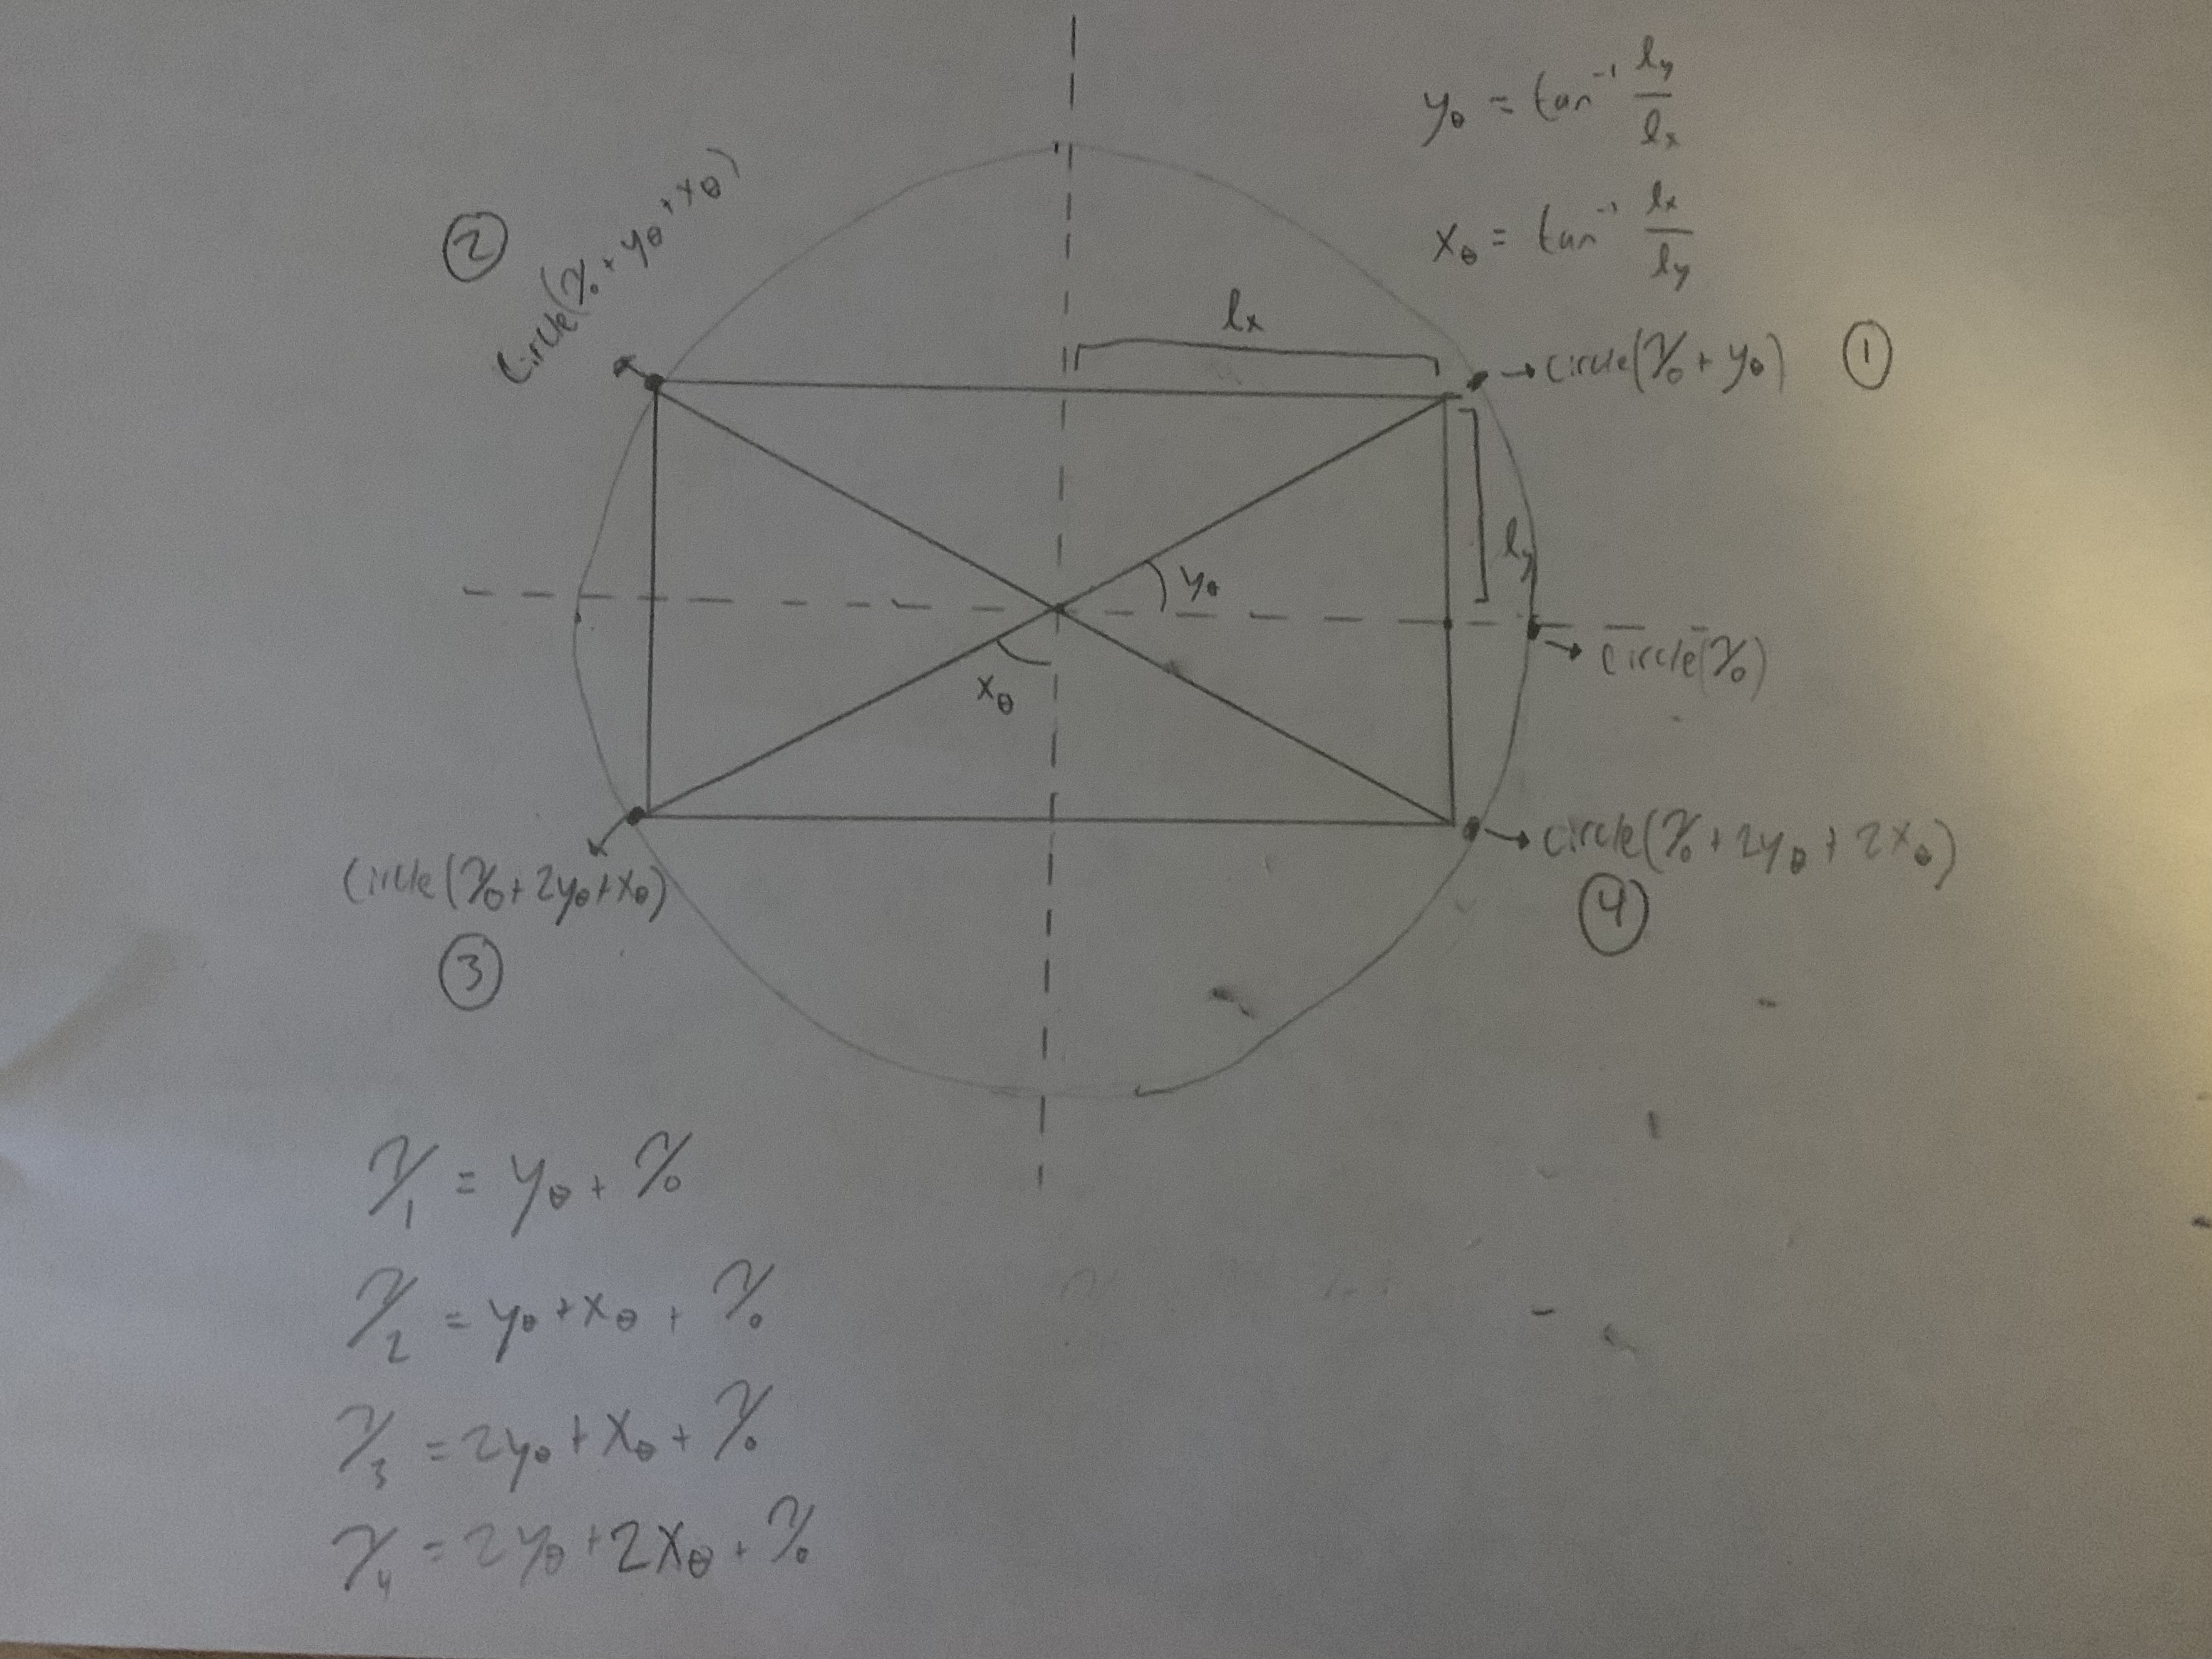 yθ = tan⁻¹ ly/lx
xθ = tan⁻¹ lx/ly
②
Circle(γ₀ + yθ + xθ)
lx
→ circle(γ₀ + yθ) ①
ly
yθ
xθ
→ circle(γ₀)
Circle(γ₀ + 2yθ + xθ)
③
→ circle(γ₀ + 2yθ + 2xθ)
④
γ₁ = yθ + γ₀
γ₂ = yθ + xθ + γ₀
γ₃ = 2yθ + xθ + γ₀
γ₄ = 2yθ + 2xθ + γ₀